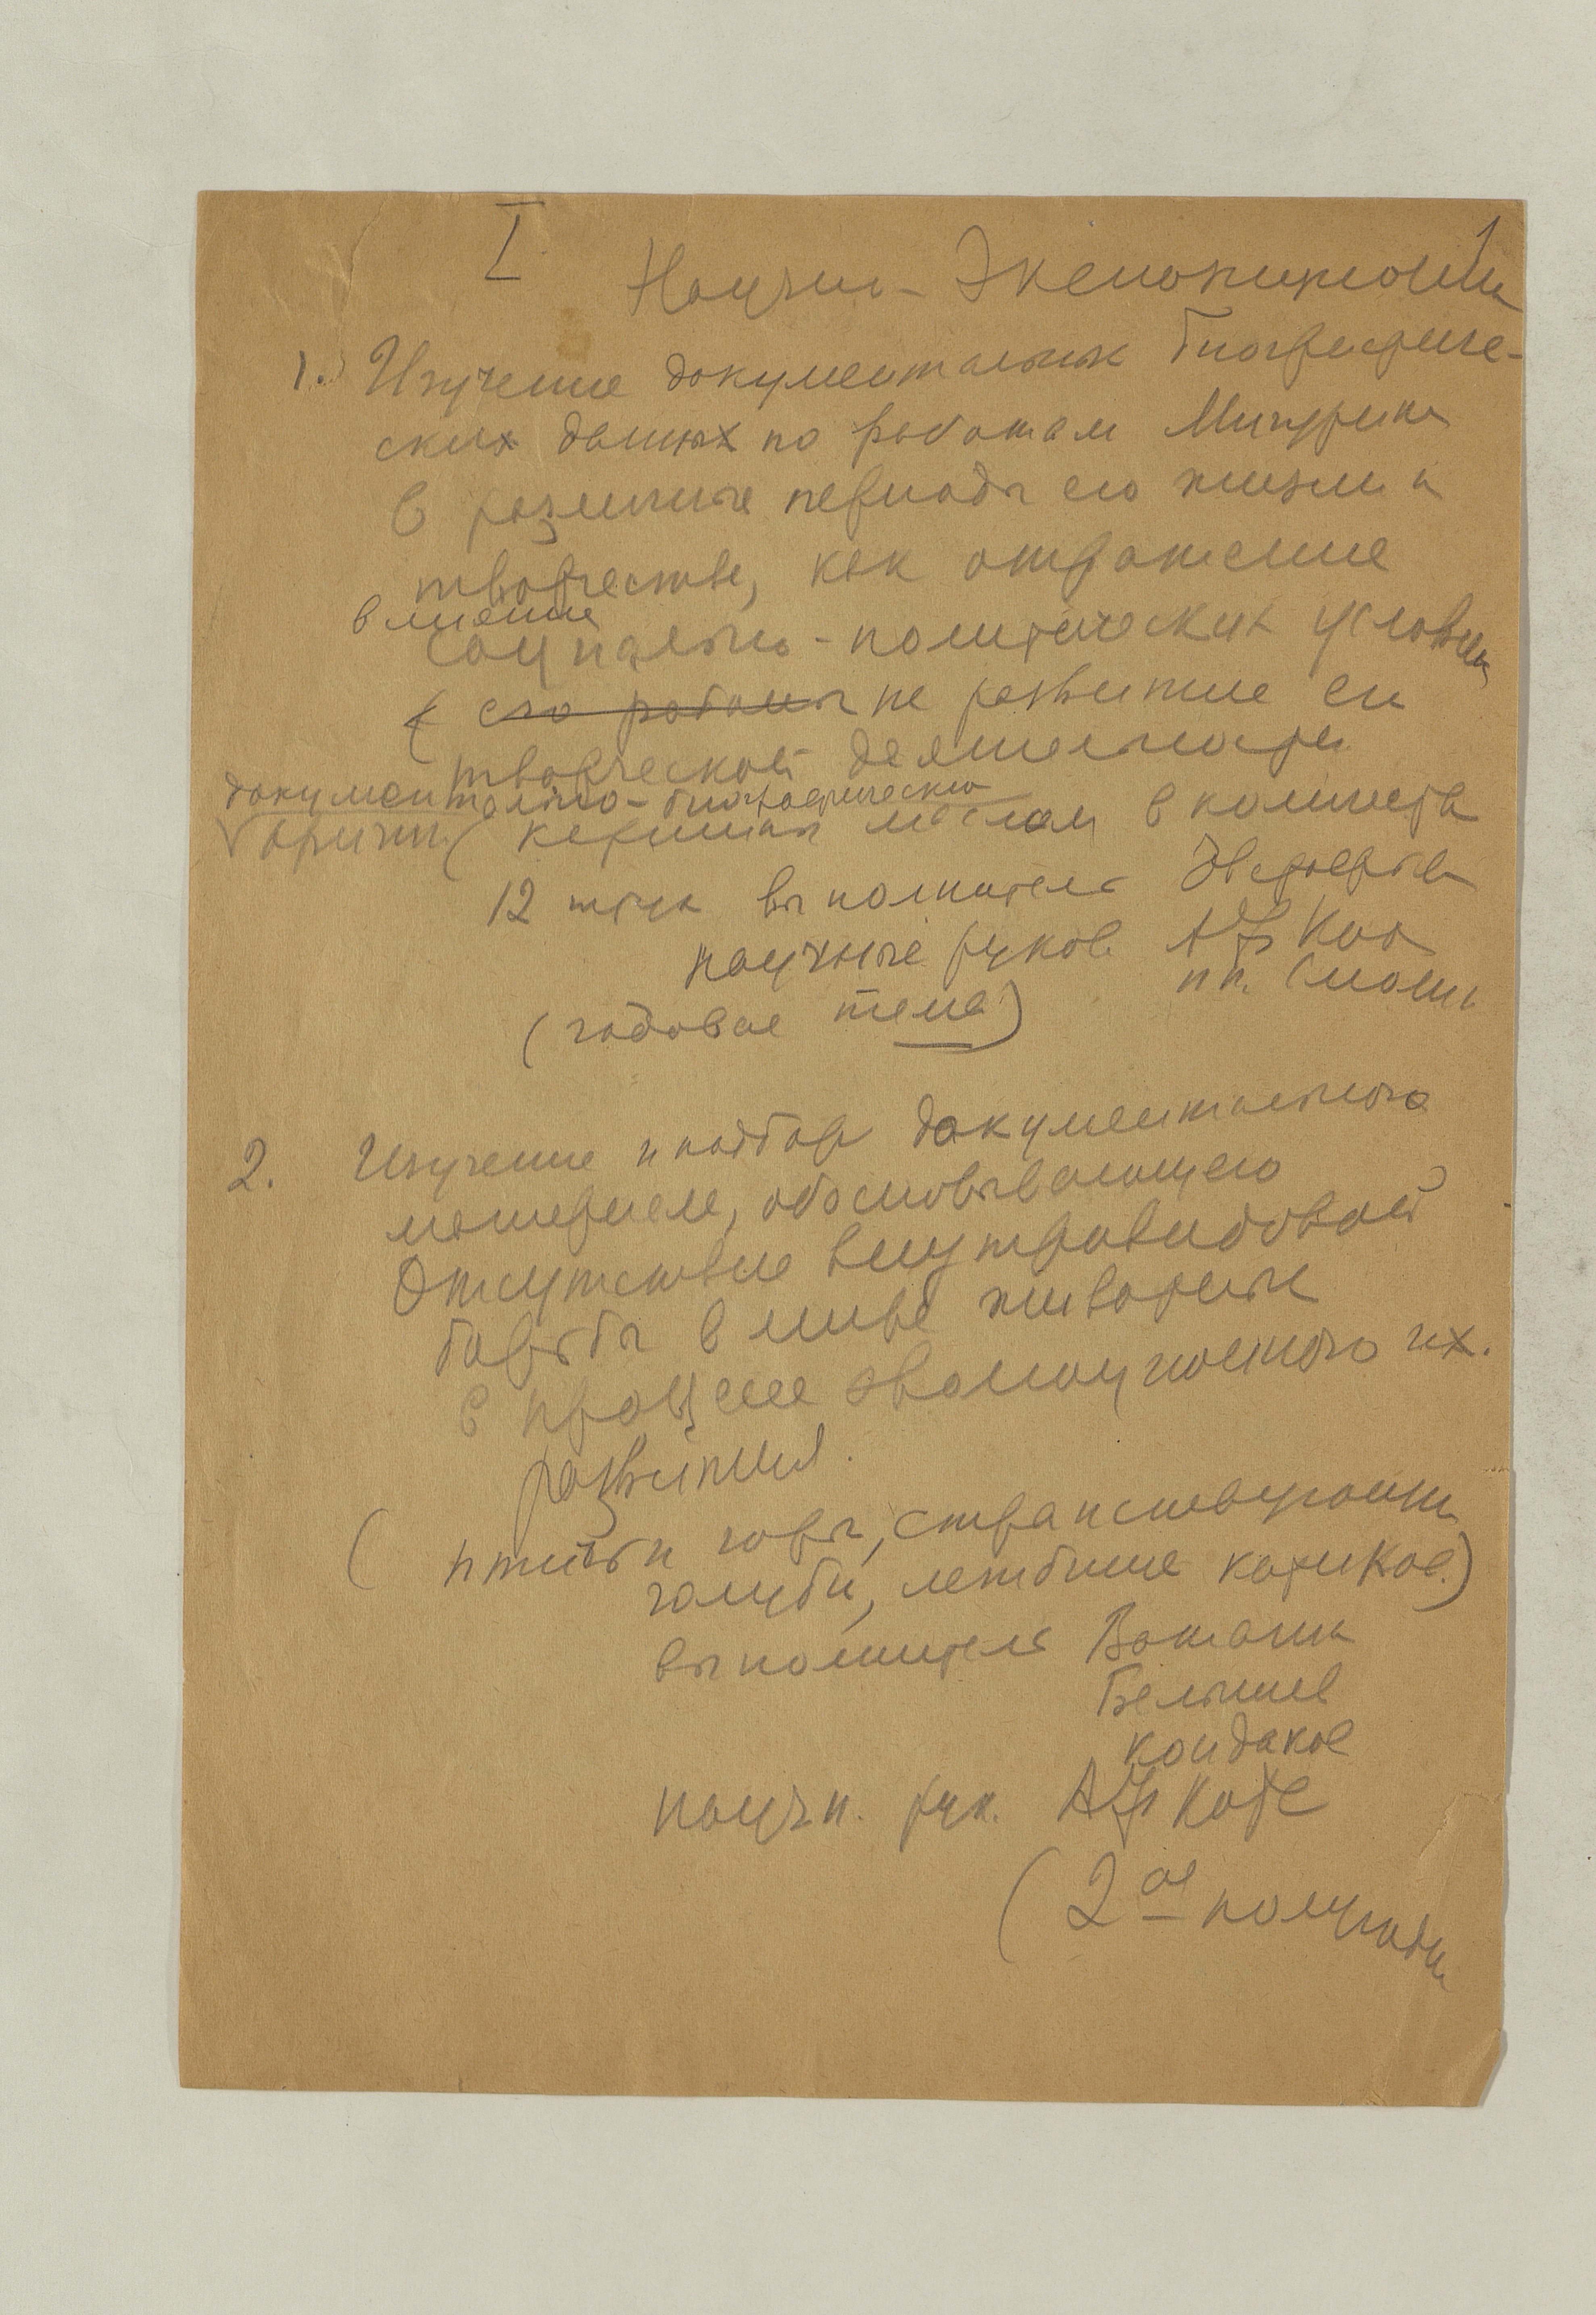 I
1
Научно-Экспозиционный
1. Изучение документальных биографиче-
ских данных по работам Мичурина
в различные периоды его жизни и
творчества, как отражение
влияние
социально-политических условий
его работы на развитие его
творческой деятельности
документально-биографические
оригин. (картины маслом в количестве
12 штук выполнитель
научные руков. АФ Котс
(годовая тема)
2. Изучение и подбор документального
материала, обосновывающего
Отсутствие внутривидовой
борьбы в мире животных
в процессе эволюционного их
развития.
(птичьи горы, странствующие
голуби, лежбище котиков.)
выполнитель Ватагин
Белышев
Кондаков
научн. рук. АФ Котс
(2ое полугодие